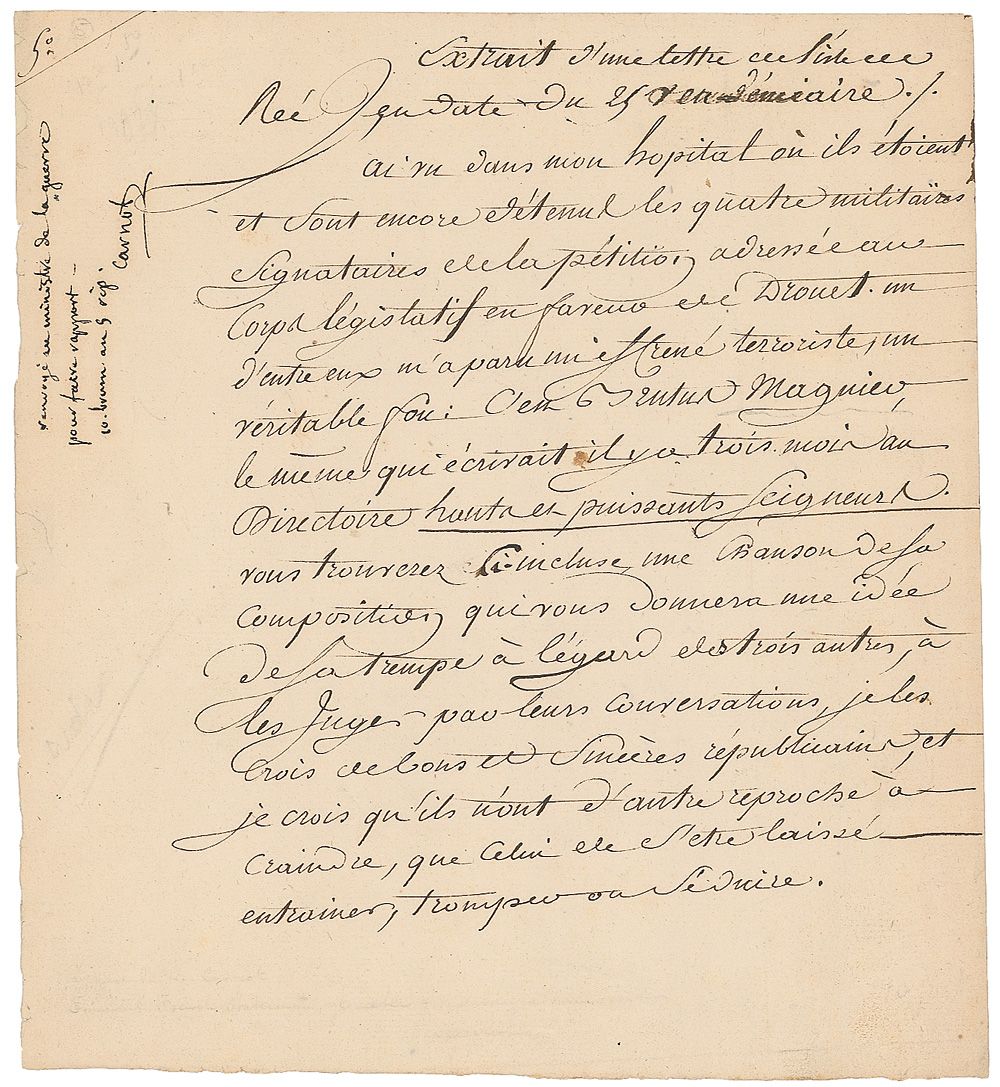 5.
Extrait d'une lettre de l'isle de
Reé en date du 25 vendémiaire ./.
ai vu dans mon hopital où ils étoient
et sont encore détenus les quatre militaires
signataires de la pétition adressée au
Corps législatif en faveur de Drouet. un
d'entre eux m'a paru un effrené terroriste, un
véritable fou: C'est Brutus Magnier,
le même qui écrivait il y a trois mois au
Directoire hauts et puissants seigneurs.
vous trouverez ci-incluse une Chanson de sa
composition qui vous donnera une idée
de sa trempe à l'égard des trois autres, à
les Juger par leurs conversations, je les
crois de bons et sincères républicains, et
je crois qu'ils n'ont d'autre reproche à
craindre, que celui de s'etre laissé
entrainer, tromper ou séduire.
renvoyé au ministre de la guerre
pour faire rapport —
10. brum an 5 rép.
Carnot